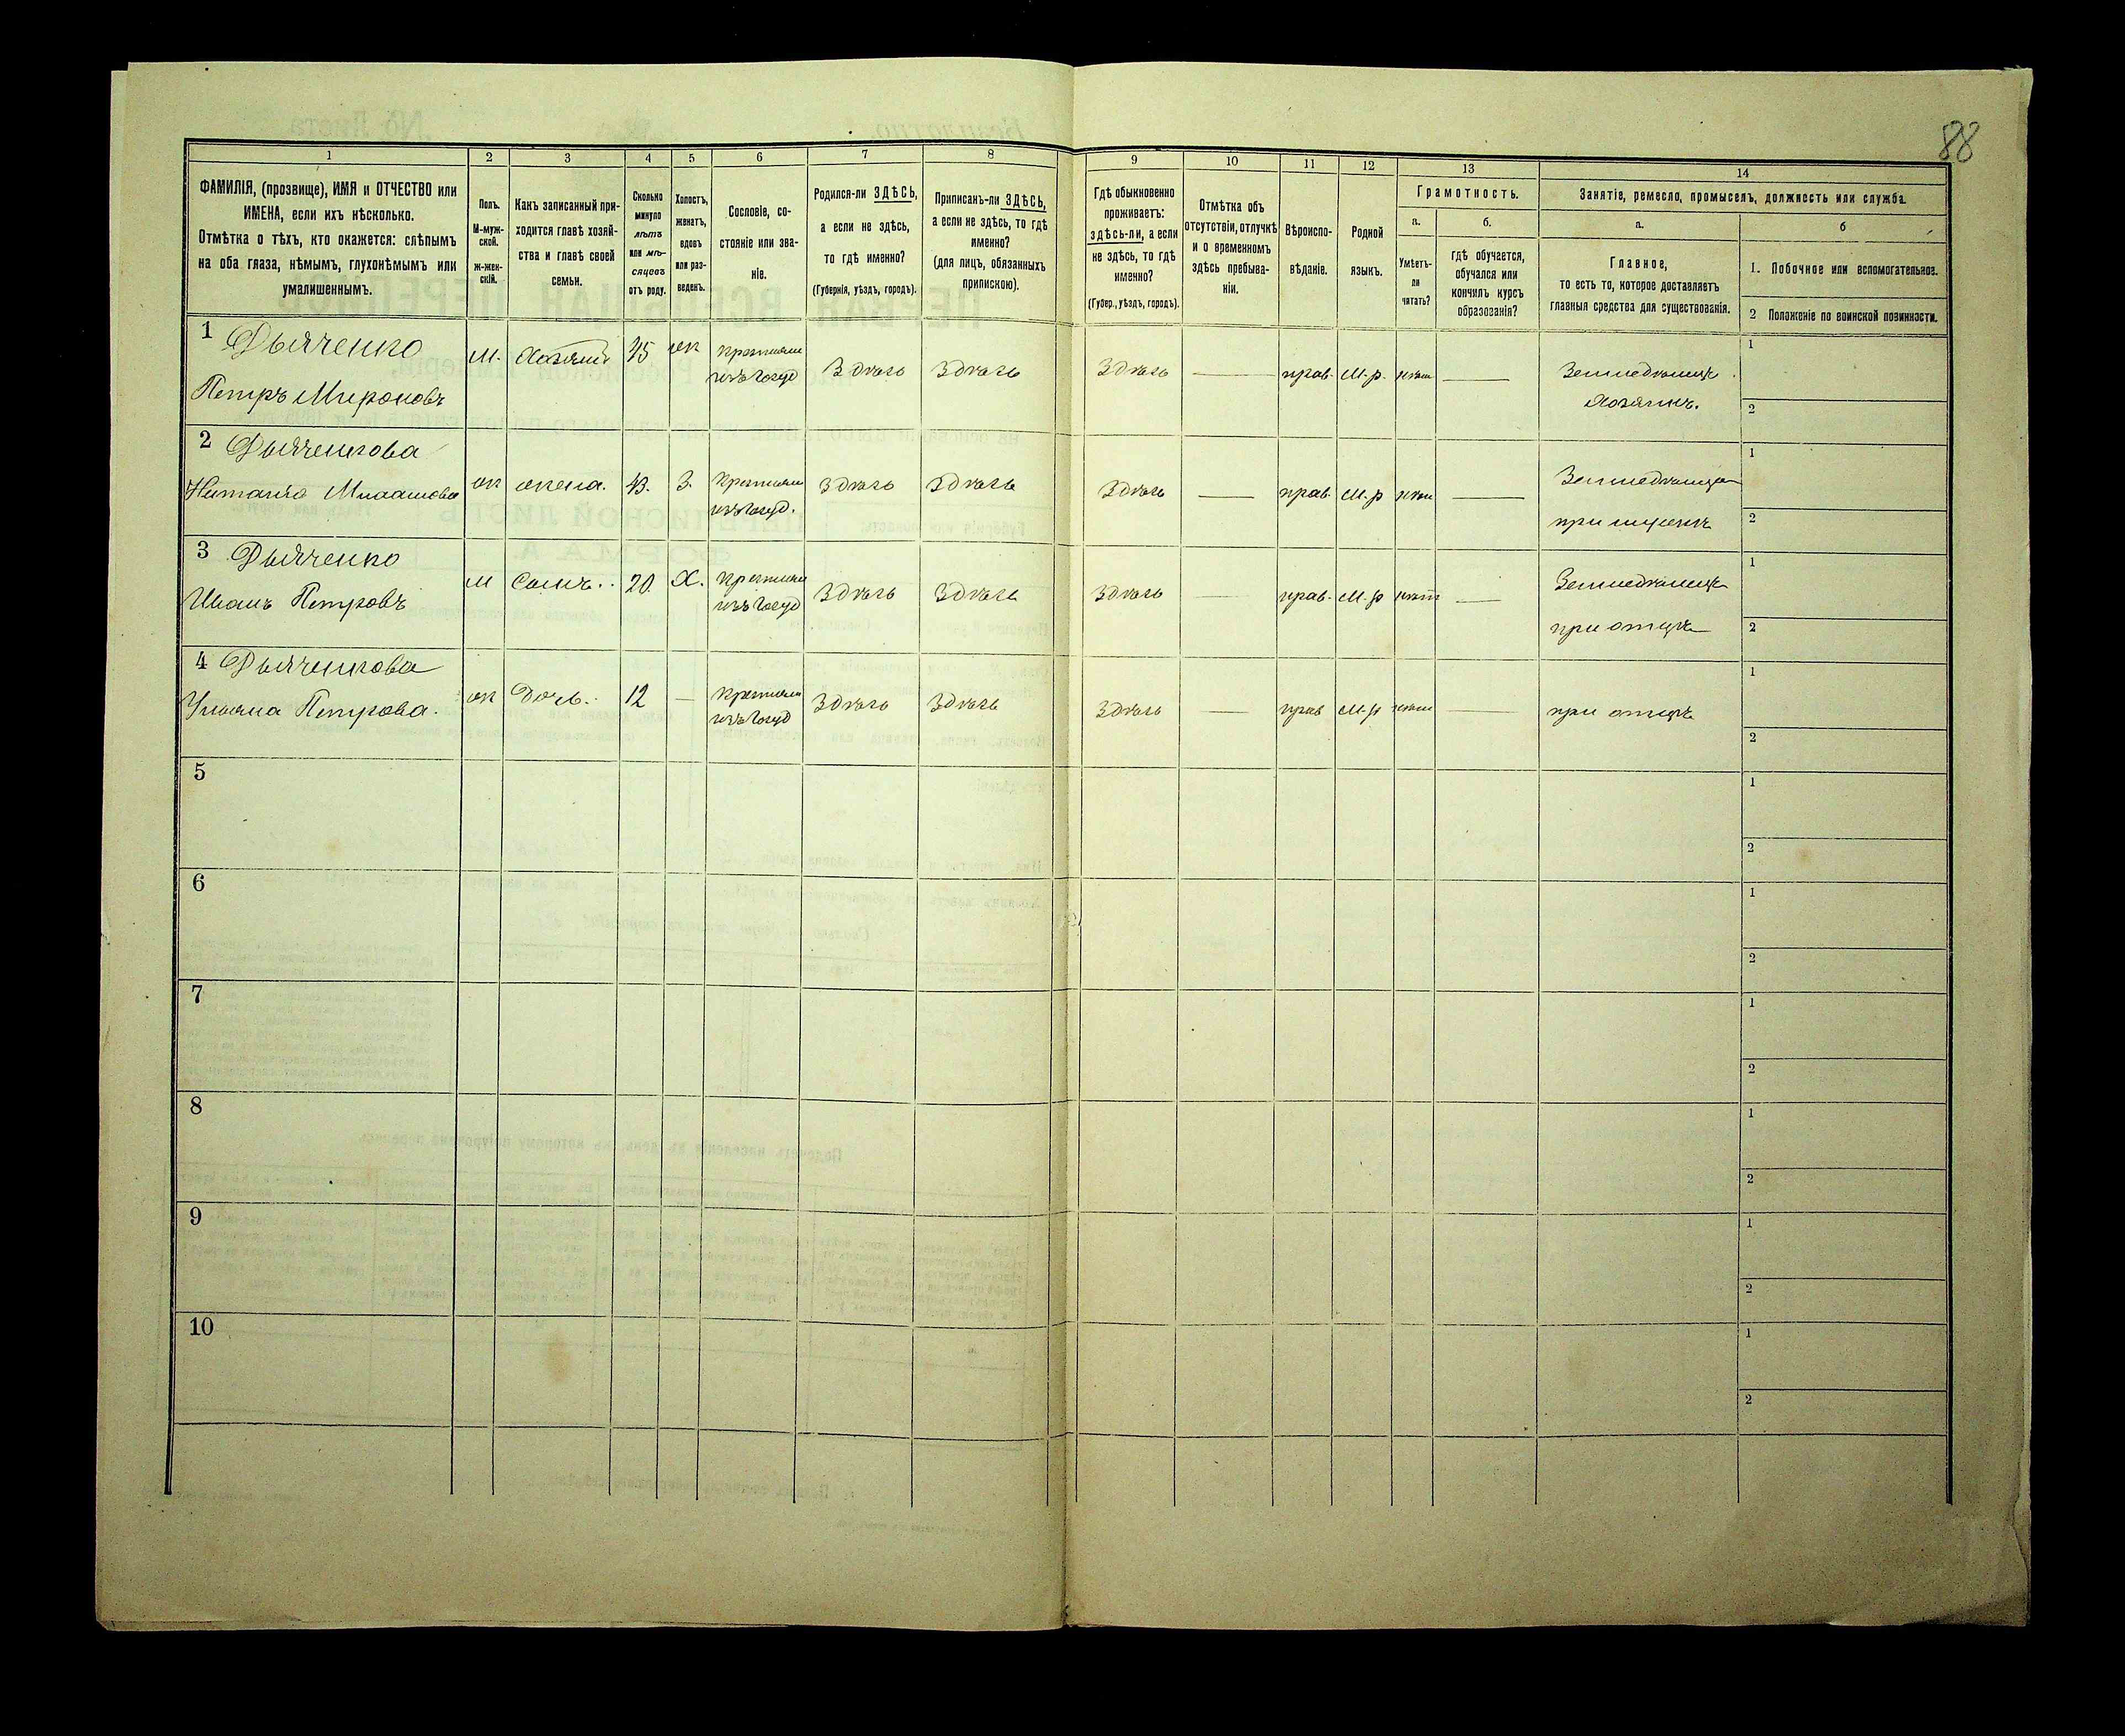 88
1 2 3 4 5 6 7 8 9 10 11 12 13 14
ФАМИЛІЯ, (прозвище), ИМЯ и ОТЧЕСТВО или
ИМЕНА, если ихъ нѣсколько.
Отмѣтка о тѣхъ, кто окажется: слѣпымъ
на оба глаза, нѣмымъ, глухонѣмымъ или
умалишеннымъ.
Полъ.
М-муж-
ской.
ж-жен-
скій.
Какъ записанный при-
ходится главѣ хозяй-
ства и главѣ своей
семьи.
Сколько
минуло
лѣтъ
или мѣ-
сяцевъ
отъ роду.
Холостъ,
женатъ,
вдовъ
или раз-
веденъ.
Сословіе, со-
стояніе или зва-
ніе.
Родился-ли ЗДѢСЬ,
а если не здѣсь,
то гдѣ именно?
(Губернія, уѣздъ, городъ).
Приписанъ-ли ЗДѢСЬ,
а если не здѣсь, то гдѣ
именно?
(для лицъ, обязанныхъ
припискою).
Гдѣ обыкновенно
проживаетъ:
здѣсь-ли, а если
не здѣсь, то гдѣ
именно?
(Губер., уѣздъ, городъ).
Отмѣтка объ
отсутствіи, отлучкѣ
и о временномъ
здѣсь пребыва-
ніи.
Вѣроиспо-
вѣданіе.
Родной
языкъ.
Грамотность.
а.
Умѣетъ-
ли
читать?
б.
гдѣ обучается,
обучался или
кончилъ курсъ
образованія?
Занятіе, ремесло, промыселъ, должность или служба.
а.
Главное,
то есть то, которое доставляетъ
главныя средства для существованія.
б
1. Побочное или вспомогательное.
2 Положеніе по воинской повинности.
1 Дьяченко
Петръ Мироновъ
М. Хозяинъ 45 ж Крестьян
изъ Госуд Здѣсь Здѣсь Здѣсь — прав. М.р. нѣт —
Земледѣлецъ
Хозяинъ.
1
2
2 Дьяченкова
Наталія
ж жена. 43. З. Крестьян
изъ Госуд. Здѣсь Здѣсь Здѣсь — прав. М.р нѣт —
Земледѣлица
при мужѣ
1
2
3 Дьяченко
Иванъ Петровъ
м Сынъ. 20. Х. Крестьян
изъ Госуд Здѣсь Здѣсь Здѣсь — прав. М.р нѣт —
Земледѣлецъ
при отцѣ
1
2
4 Дьяченкова
Ульяна Петрова.
ж Дочь. 12 — Крестьян
изъ Госуд Здѣсь Здѣсь Здѣсь — прав М.р нѣт —
при отцѣ
1
2
5
1
2
6
1
2
7
1
2
8
1
2
9
1
2
10
1
2